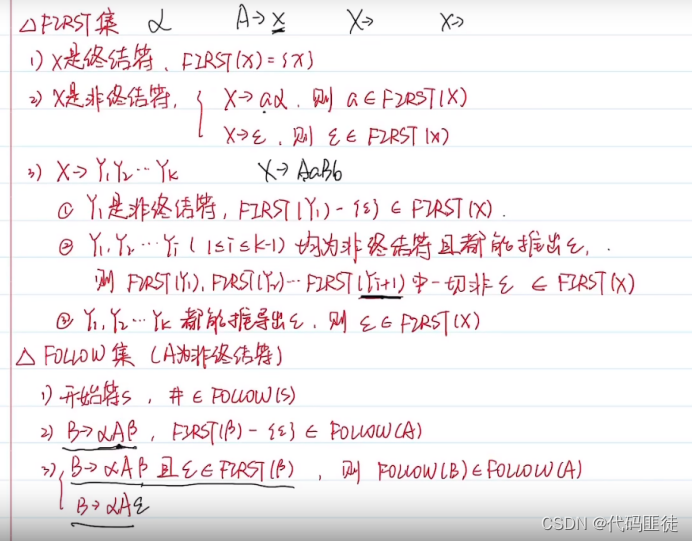 △FIRST集 α A→x X→ X→
1) X是终结符、FIRST(X)={X}
2) X是非终结符, { X→aα. 则 a∈FIRST(X)
X→ε. 则 ε∈FIRST(X)
3) X→Y₁Y₂…Yₖ X→AaBb
① Y₁是非终结符, FIRST(Y₁)-{ε}∈FIRST(X).
② Y₁,Y₂…Yᵢ(1≤i≤k-1)均为非终结符且都能推出ε,.
则 FIRST(Y₁),FIRST(Y₂)…FIRST(Yᵢ₊₁)中一切非ε ∈FIRST(X)
③ Y₁,Y₂…Yₖ 都能推导出ε, 则 ε∈FIRST(X)
△FOLLOW集 (A为非终结符)
1) 开始符S, #∈FOLLOW(S)
2) B→αAβ, FIRST(β)-{ε}∈FOLLOW(A)
3) { B→αAβ且ε∈FIRST(β), 则 FOLLOW(B)∈FOLLOW(A)
B→αAε
CSDN @代码匪徒